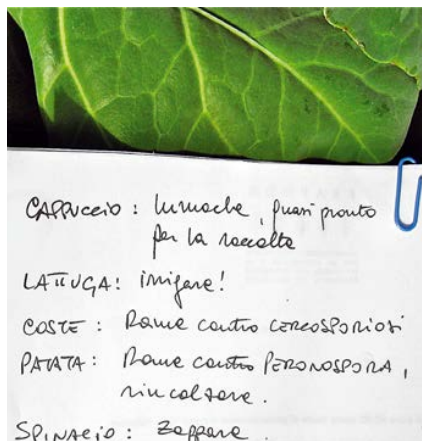 CAPPUCCIO : lumache, quasi pronto
per la raccolta
LATTUGA: irrigare!
COSTE : Rame contro CERCOSPORIOSI
PATATA: Rame contro PERONOSPORA,
rincalzare.
SPINACIO : Zappare.